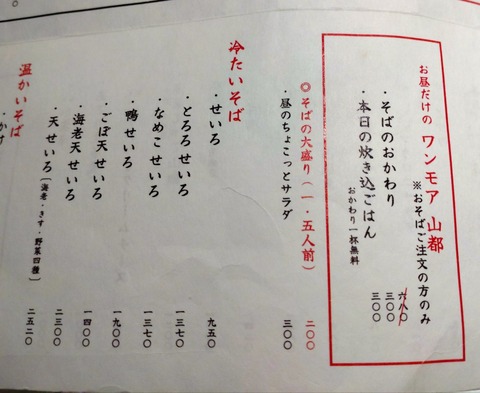 お昼だけの ワンモア 山都
※おそばご注文の方のみ
・そばのおかわり 六八〇 三〇〇
・本日の炊き込ごはん 三〇〇
おかわり一杯無料
◎そばの大盛り(一・五人前) 二〇〇
・昼のちょこっとサラダ 三〇〇
冷たいそば
・せいろ 九五〇
・とろろせいろ 一三七〇
・なめこせいろ 一三七〇
・鴨せいろ 一九〇〇
・ごぼ天せいろ 一四〇〇
・海老天せいろ 二三〇〇
・天せいろ[海老・きす・野菜四種] 二五二〇
温かいそば
・かけ